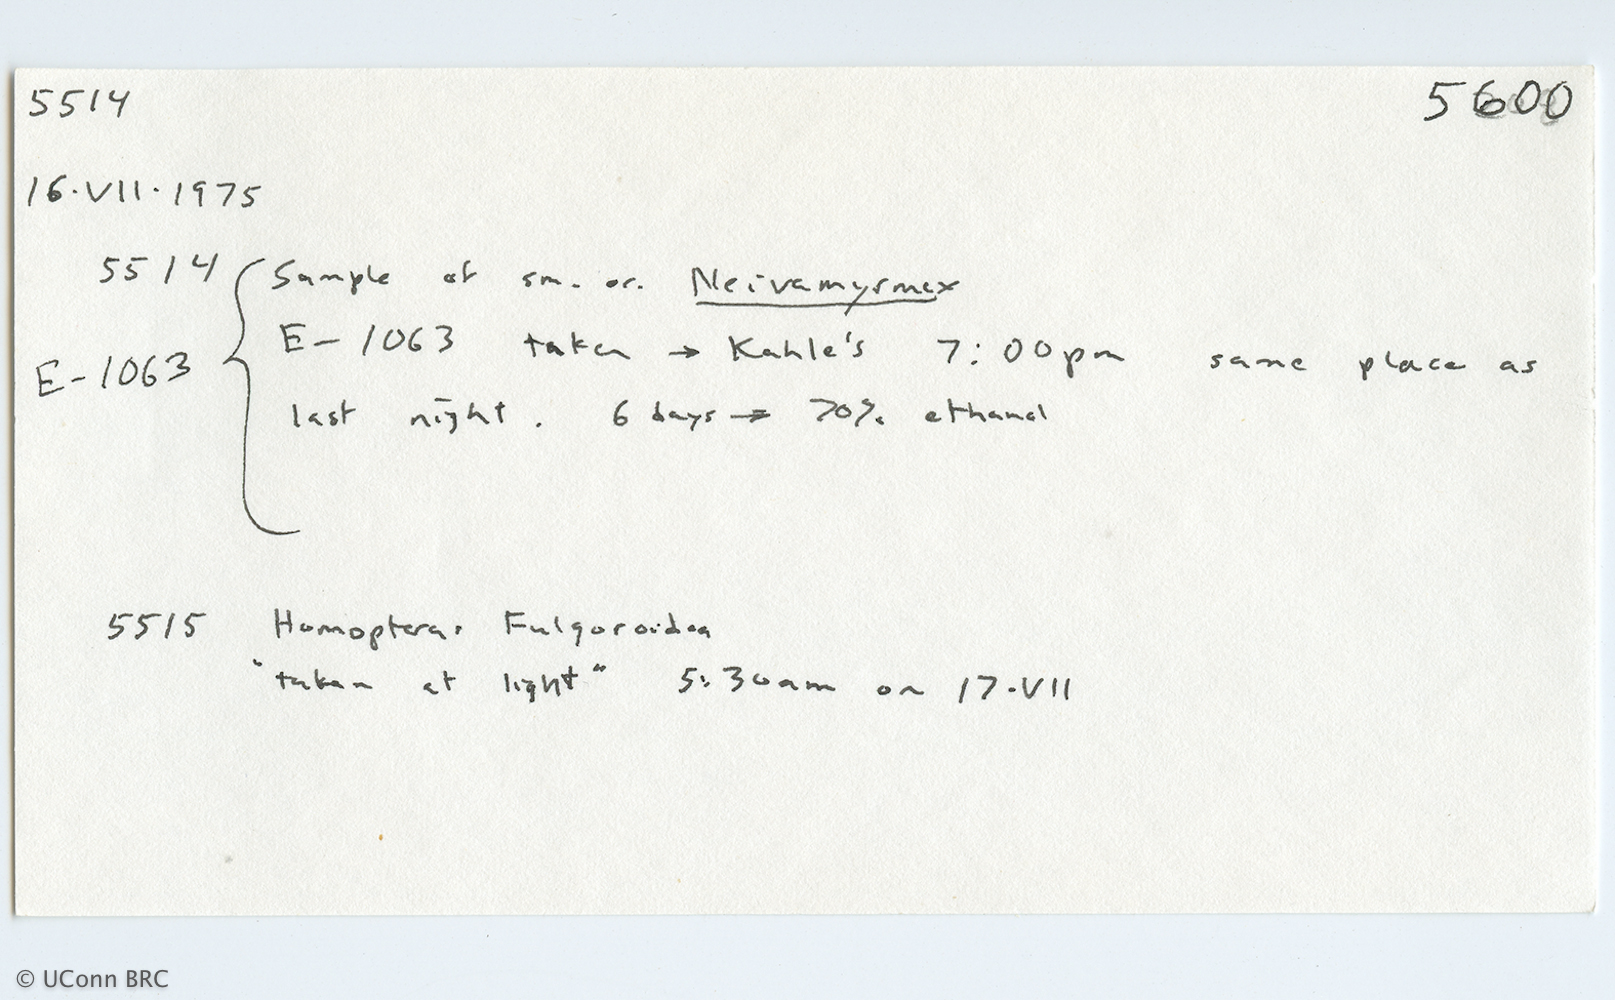 5514
5600
16·VII·1975
5514 Sample of sm. or. Neivamyrmex
E-1063
E-1063 taken → Kahle's 7:00pm same place as
last night. 6 days → 70% ethanol
5515 Homoptera: Fulgoroidea
"taken at light" 5:30am on 17·VII
© UConn BRC